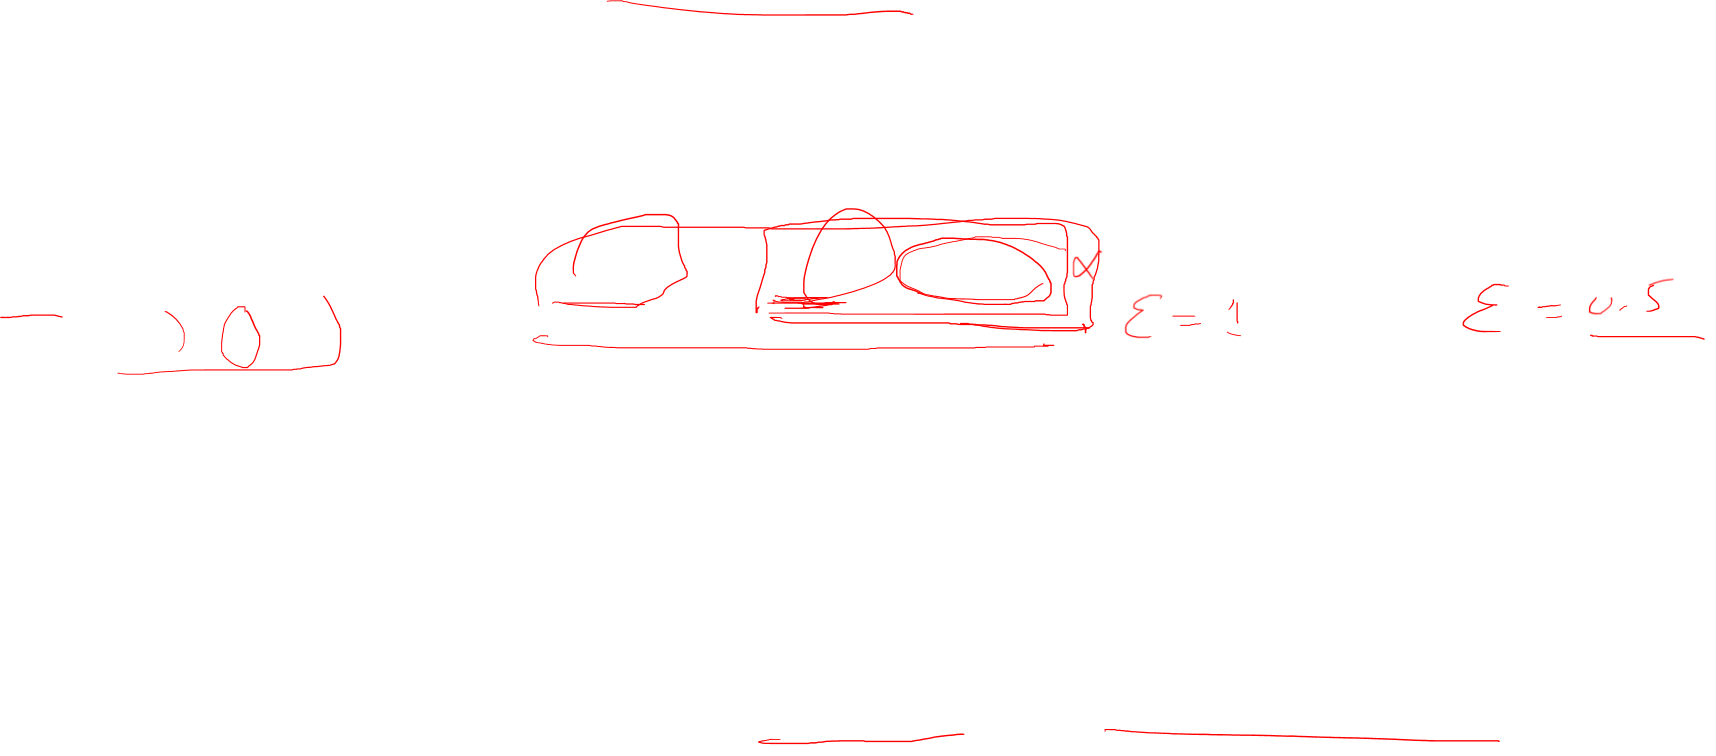 ε = 1 ε = 0.5